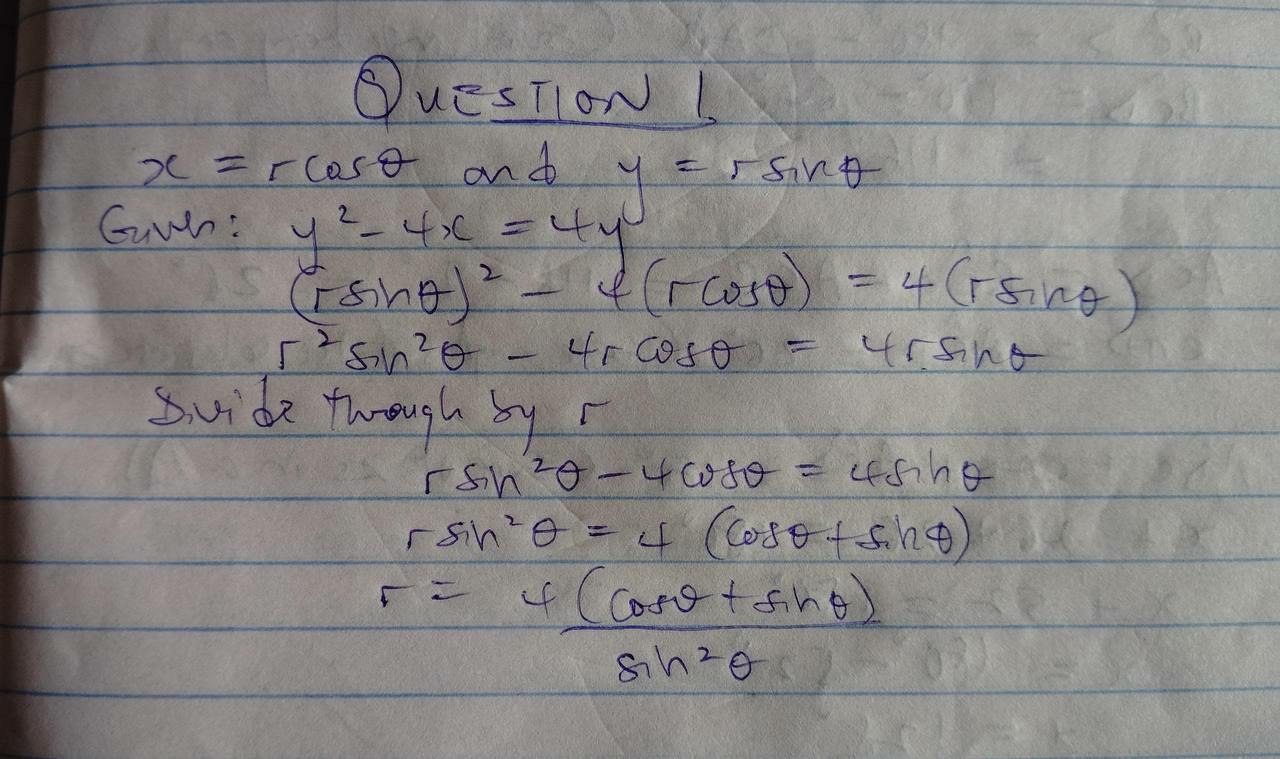 QUESTION 1
x = r cosθ and y = r sinθ
Given: y² - 4x = 4y
(r sinθ)² - 4(r cosθ) = 4(r sinθ)
r² sin²θ - 4r cosθ = 4r sinθ
Divide through by r
r sin²θ - 4 cosθ = 4 sinθ
r sin²θ = 4 (cosθ + sinθ)
r = 4 (cosθ + sinθ)
sin²θ